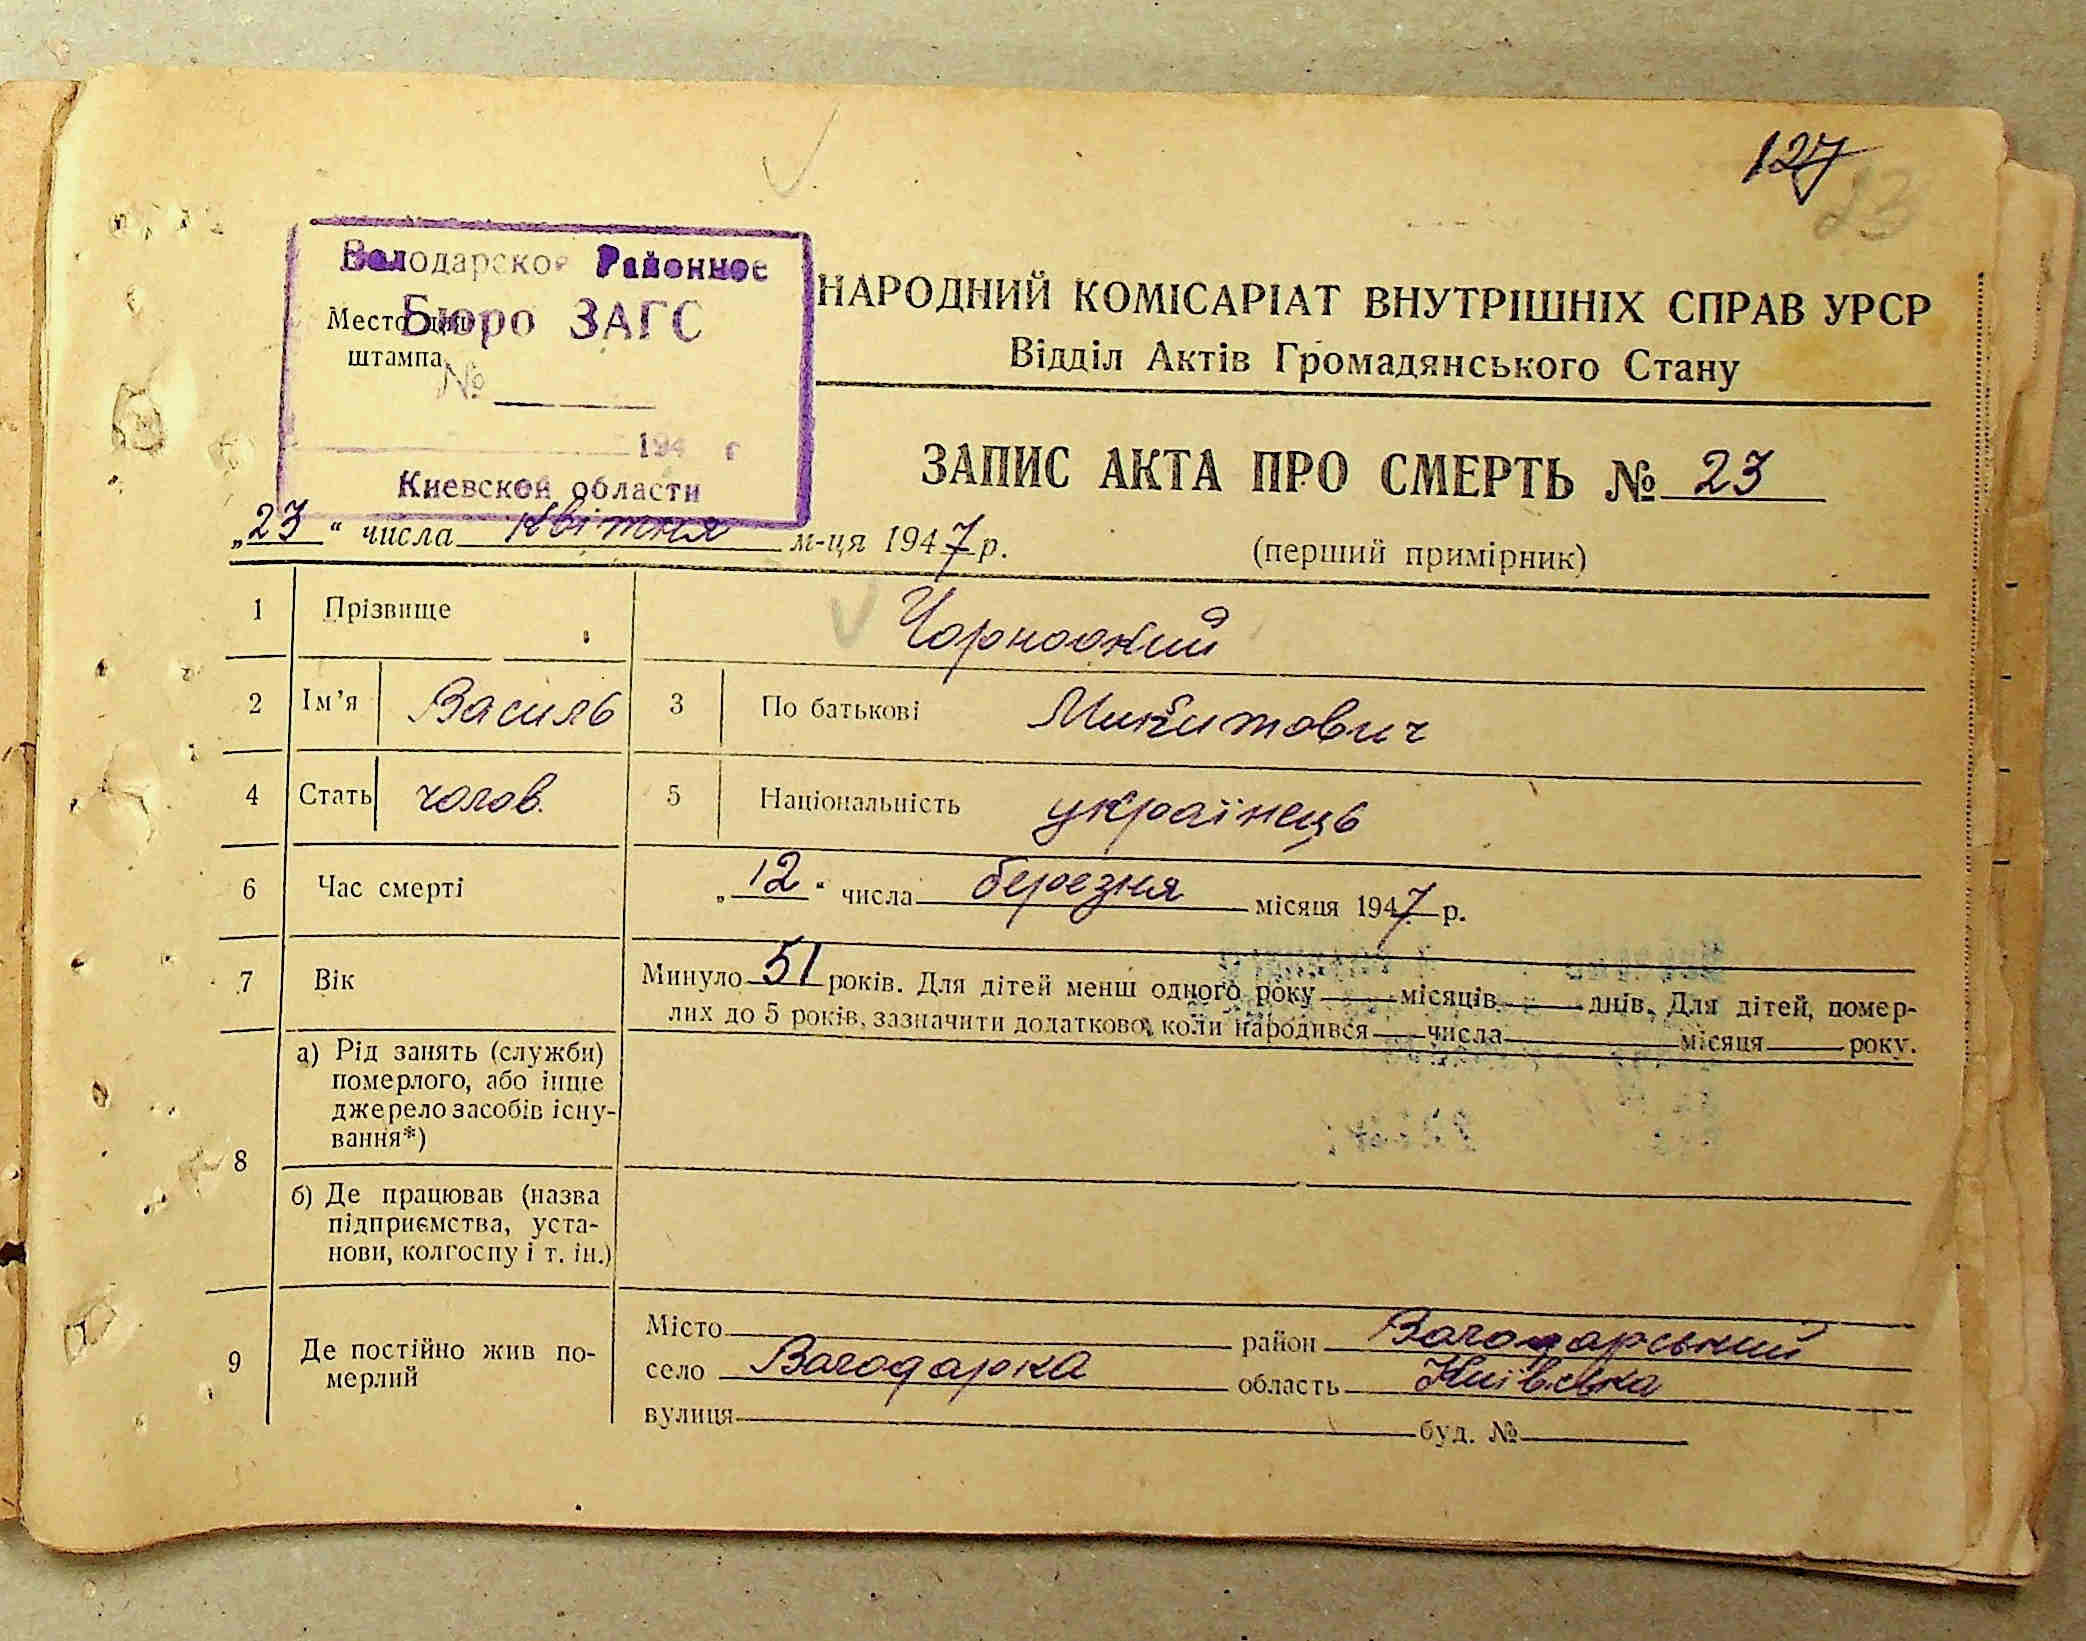 127
23
Володарское Районное
Бюро ЗАГС
Место для
штампа
№
194 г
Киевской области
НАРОДНИЙ КОМІСАРІАТ ВНУТРІШНІХ СПРАВ УРСР
Відділ Актів Громадянського Стану
ЗАПИС АКТА ПРО СМЕРТЬ № 23
„23“ числа квітня м-ця 1947 р.
(перший примірник)
1 Прізвище Чорноокий
2 Ім'я Василь 3 По батькові Микитович
4 Стать чолов. 5 Національність українець
6 Час смерті „12“ числа березня місяця 1947 р.
7 Вік Минуло 51 років. Для дітей менш одного року місяців днів. Для дітей, помер-
лих до 5 років, зазначити додатково, коли народився числа місяця року.
8 а) Рід занять (служби)
померлого, або інше
джерело засобів існу-
вання*)
б) Де працював (назва
підприємства, уста-
нови, колгоспу і т. ін.)
9 Де постійно жив по-
мерлий
Місто район Володарський
село Володарка область Київська
вулиця буд. №